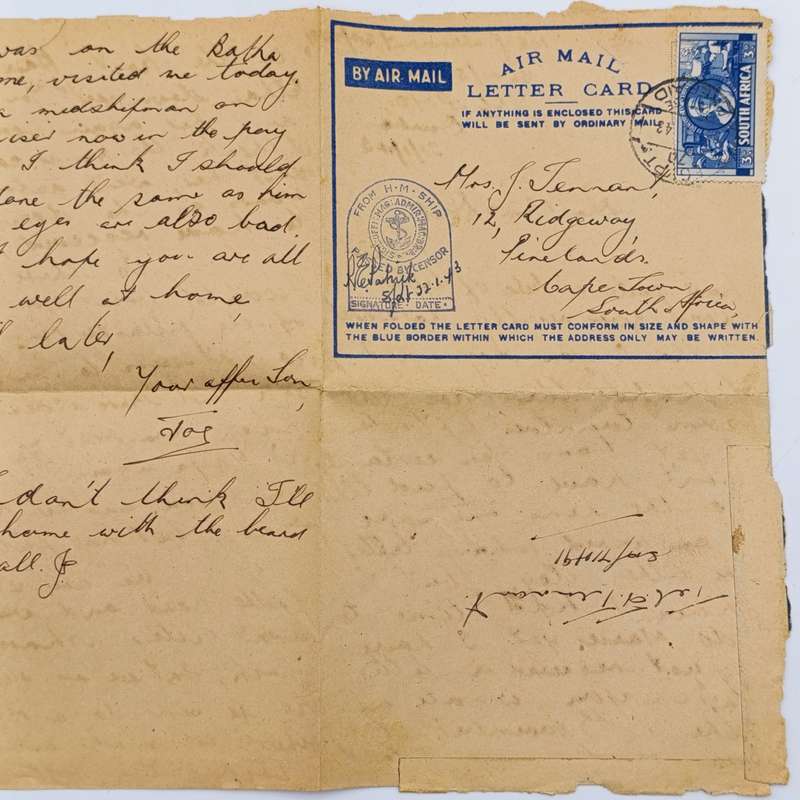 was on the Batha
me, visited me today.
a midshipman on
iser now in the pay
I think I should
done the same as him
eyes are also bad.
I hope you are all
well at home,
later,
Your affec Son,
Joe
don't think I'll
home with the beard
all. J.
BY AIR MAIL
AIR MAIL
LETTER CARD
IF ANYTHING IS ENCLOSED THIS CARD
WILL BE SENT BY ORDINARY MAIL
SOUTH AFRICA
3D
Mrs. J. Tennant,
12, Ridgeway,
Pinelands.
Cape Town,
South Africa,
FROM H·M·SHIP
PASSED BY CENSOR
22.1.43
SIGNATURE · DATE
WHEN FOLDED THE LETTER CARD MUST CONFORM IN SIZE AND SHAPE WITH
THE BLUE BORDER WITHIN WHICH THE ADDRESS ONLY MAY BE WRITTEN.
Tennant